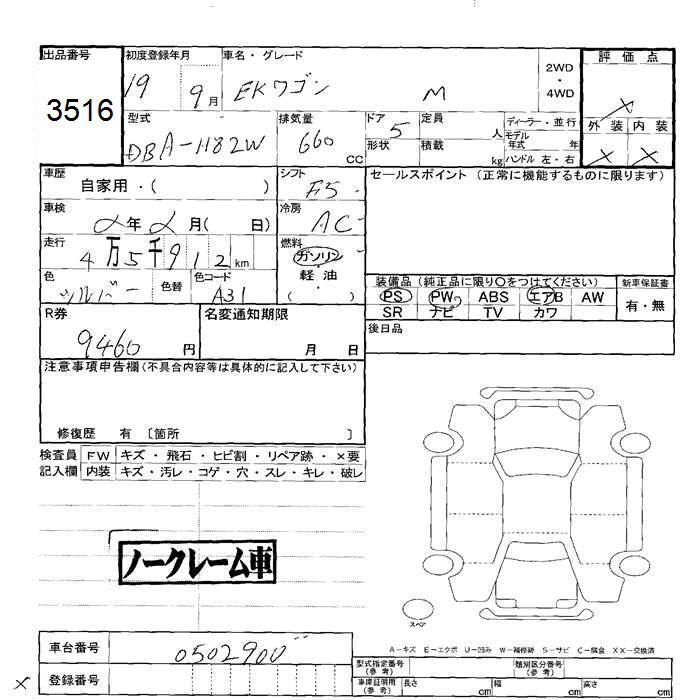 出品番号 初度登録年月 車名・グレード 2WD・4WD 評価点
3516 19 9月 EKワゴン M X
型式 排気量 ドア 定員 ディーラー・並行 外装 内装
DBA-H82W 660 CC 5 人 モデル年式 年 X X
形状 積載 kg ハンドル 左・右
車歴 シフト セールスポイント (正常に機能するものに限ります)
自家用・( ) F5
車検 冷房
2年2月( 日) AC
走行 燃料
4万5千912km ガソリン
軽油
色 色替 色コード ( )
シルバー A31
装備品 (純正品に限り○をつけてください) 新車保証書
PS PW ABS エアB AW 有・無
SR ナビ TV カワ
R券 名変通知期限 後日品
9460円 月 日
注意事項申告欄(不具合内容等は具体的に記入して下さい)
修復歴 有 〔箇所 〕
検査員 FW キズ・飛石・ヒビ割・リペア跡・×要
記入欄 内装 キズ・汚レ・コゲ・穴・スレ・キレ・破レ
ノークレーム車
スペア
A-キズ E-エクボ U-凹み W-補修跡 S-サビ C-腐食 XX-交換済
車台番号 0502900 型式指定番号(参考) 類別区分番号(参考)
X 登録番号 車庫証明用(参考) 長さ cm 幅 cm 高さ cm